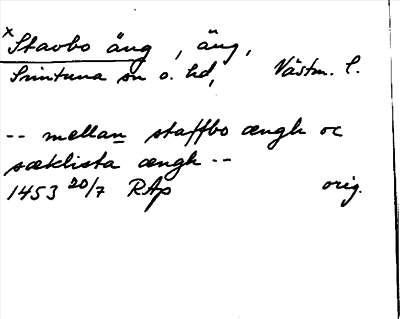 x Stavbo äng, äng,
Simtuna sn o. hd, Västm. l.
-- mellan staffbo ængh oc
sæklista ængh --
1453 20/7 RAp orig.